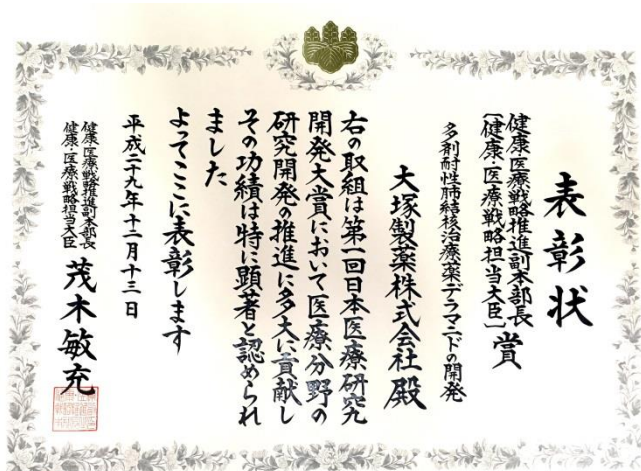 表彰状
健康・医療戦略推進副本部長
〔健康・医療戦略担当大臣〕賞
多剤耐性肺結核治療薬デラマニドの開発
大塚製薬株式会社 殿
右の取組は第一回日本医療研究
開発大賞において医療分野の
研究開発の推進に多大に貢献し
その功績は特に顕著と認められ
ました
よってここに表彰します
平成二十九年十二月十三日
健康・医療戦略推進副本部長
健康・医療戦略担当大臣
茂木敏充